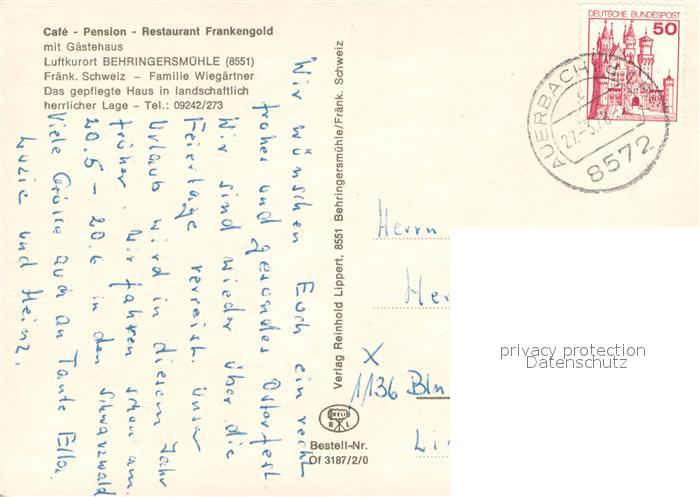 Café - Pension - Restaurant Frankengold
mit Gästehaus
Luftkurort BEHRINGERSMÜHLE (8551)
Fränk. Schweiz – Familie Wiegärtner
Das gepflegte Haus in landschaftlich
herrlicher Lage – Tel.: 09242/273
Wir wünschen Euch ein recht
frohes und gesundes Osterfest.
Wir sind wieder über die
Feiertage verreist. Unser
Urlaub wird in diesem Jahr
früher. Wir fahren schon am
20.5 – 20.6 in den Schwarzwald
Viele Grüße auch an Tante Ella.
Luzie und Heinz.
Verlag Reinhold Lippert, 8551 Behringersmühle/Fränk. Schweiz
RELI
R L
Bestell-Nr.
Of 3187/2/0
DEUTSCHE BUNDESPOST
50
AUERBACH
8572
Herrn
Her
X
1136 Bln
Li
privacy protection
Datenschutz